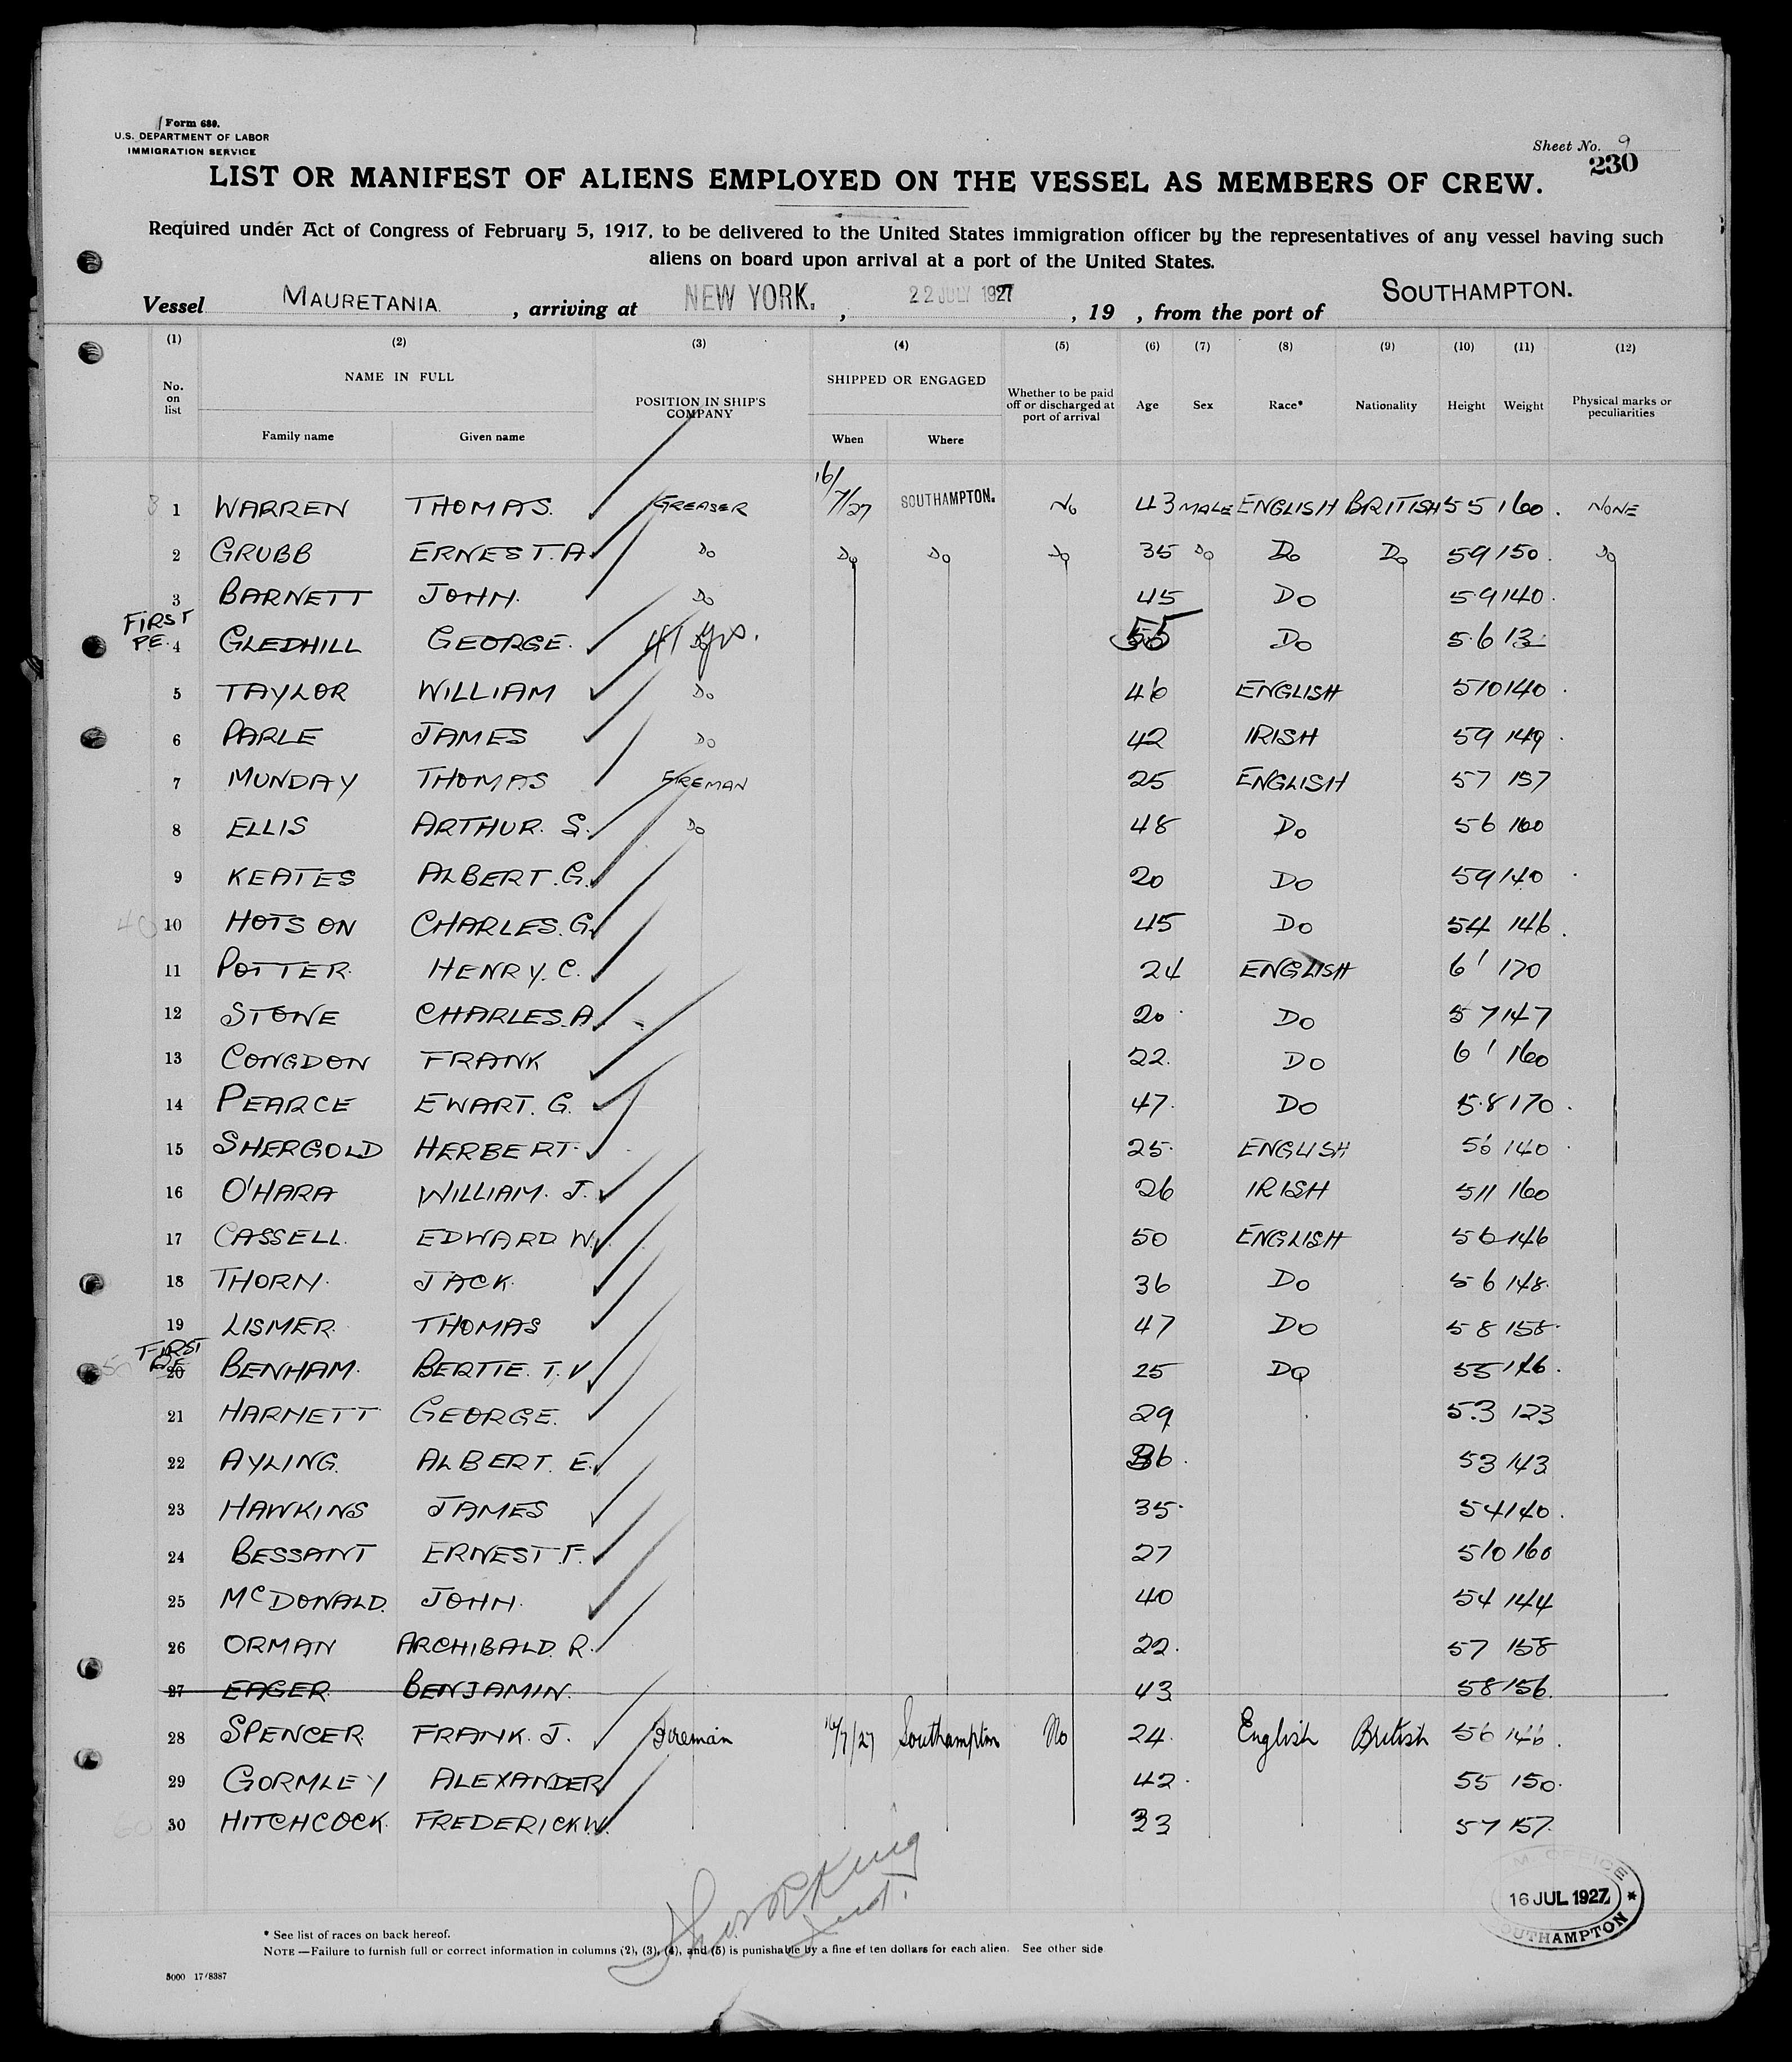 Form 689.
U.S. DEPARTMENT OF LABOR
IMMIGRATION SERVICE
Sheet No. 9
230
LIST OR MANIFEST OF ALIENS EMPLOYED ON THE VESSEL AS MEMBERS OF CREW.
Required under Act of Congress of February 5, 1917, to be delivered to the United States immigration officer by the representatives of any vessel having such
aliens on board upon arrival at a port of the United States.
Vessel MAURETANIA , arriving at NEW YORK. , 22 JULY 1927 , 19 , from the port of SOUTHAMPTON.
(1) (2) (3) (4) (5) (6) (7) (8) (9) (10) (11) (12)
No. on list NAME IN FULL POSITION IN SHIP'S COMPANY SHIPPED OR ENGAGED Whether to be paid off or discharged at port of arrival Age Sex Race* Nationality Height Weight Physical marks or peculiarities
Family name Given name When Where
1 WARREN THOMAS. GREASER 16/7/27 SOUTHAMPTON. No 43 MALE ENGLISH BRITISH 55 160. NONE
2 GRUBB ERNEST. A Do Do Do Do 35 Do Do Do 59 150. Do
3 BARNETT JOHN. Do 45 Do 59 140.
FIRST
PE. 4 GLEDHILL GEORGE. 41 yrs. 55 Do 5.6 13
5 TAYLOR WILLIAM Do 46 ENGLISH 510 140.
6 PARLE JAMES Do 42 IRISH 59 149.
7 MUNDAY THOMAS FIREMAN 25 ENGLISH 57 157
8 ELLIS ARTHUR. S. Do 48 Do 56 160
9 KEATES ALBERT. G. 20 Do 59 140.
40 10 HOTSON CHARLES. G. 45 Do 54 146.
11 POTTER. HENRY. C. 24 ENGLISH 6' 170
12 STONE CHARLES. A. 20. Do 57 147
13 CONGDON FRANK 22. Do 6' 160
14 PEARCE EWART. G. 47. Do 5.8 170.
15 SHERGOLD HERBERT. 25. ENGLISH 56 140.
16 O'HARA WILLIAM. J. 26 IRISH 511 160
17 CASSELL. EDWARD W. 50 ENGLISH 56 146
18 THORN. JACK. 36 Do 56 148.
19 LISMER. THOMAS 47 Do 58 158.
FIRST
PE 20 BENHAM. BERTIE. T. V 25 Do 55 146.
21 HARNETT GEORGE. 29 5.3 123
22 AYLING. ALBERT. E. 36. 53 143
23 HAWKINS JAMES 35. 54 140.
24 BESSANT ERNEST. F. 27 510 160
25 McDONALD. JOHN. 40 54 144
26 ORMAN ARCHIBALD. R. 22. 57 158
27 EAGER. BENJAMIN. 43 58 156.
28 SPENCER. FRANK. J. Fireman 16/7/27 Southampton No 24. English British 56 146.
29 GORMLEY ALEXANDER 42. 55 150.
30 HITCHCOCK. FREDERICK W. 33 57 157.
16 JUL 1927
* See list of races on back hereof.
NOTE —Failure to furnish full or correct information in columns (2), (3), (4), and (5) is punishable by a fine of ten dollars for each alien. See other side
5000 17/8387